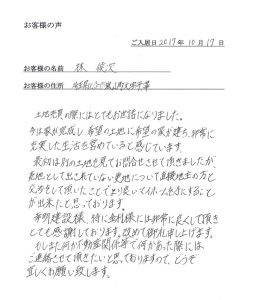 お客様の声
ご入居日 2017年10月17日
お客様の名前 林 俊次
お客様の住所
土地売買の際にはとてもお世話になりました。
今は家が完成し、希望の土地に希望の家が建ち、非常に
充実した生活を営めていると感じています。
最初は別の土地を見てお問合せさせて頂きましたが、
売地として出てきていない更地について直接地主の方と
交渉をして頂いたことでより良いマイホームを手にすること
が出来たと思っております。
建設様、特に 様には非常に良くして頂き
とても感謝しております。改めて御礼申し上げます。
もしまた何か不動産関係等で何かあった際には
ご連絡させて頂きたいと思っておりますので、どうぞ
宜しくお願い致します。